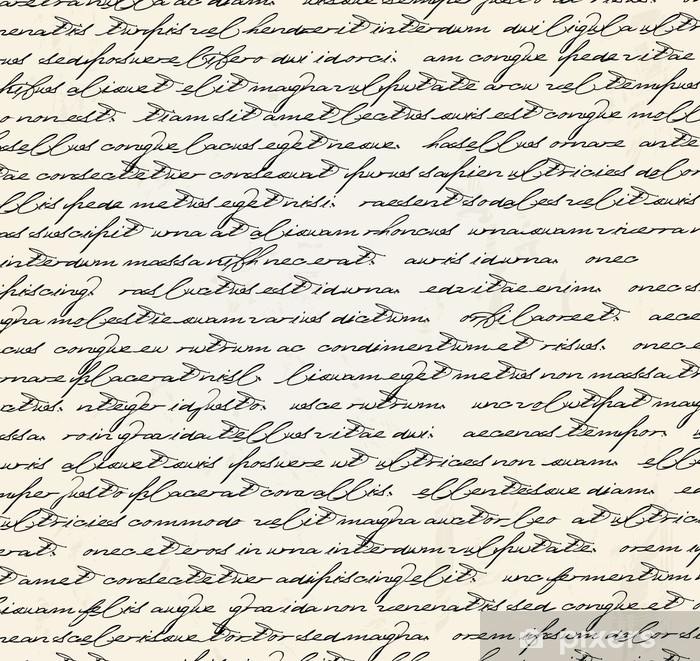 venenatis turpis vel hendrerit interdum dui ligula ultri
us sed posuere libero dui id orci. am congue pede vitae
aliquet elit magna vulputate arcu vel tempus
o non est. tiam sit amet lectus quis est congue moll
sellus congue lacus eget neque. hasellus ornare ante
ae consectetuer consequat purus sapien ultricies dolor
llis pede metus eget nisi. raesent sodales velit quis
as suscipit urna at aliquam rhoncus urna quam viverra n
interdum massa nibh nec erat. auris id urna. onec
ipiscing. ras luctus est id urna. ed vitae enim. onec s
gna molestie quam varius dictum. orbi laoreet. aece
cus congue eu rutrum ac condimentum et risus. onec e
rnare placerat nisl. liquam eget metus non massa tr
ctus. nteger id justo. usce rutrum. unc volutpat mag
ssa. roin gravida tellus vitae dui. aecenas tempor.
uris aliquet quis posuere ut ultrices non quam. ell
mper justo placerat convallis. ellentesque diam. ed
ultricies commodo velit magna auctor leo at ultric
erat. onec et eros in urna interdum vulputate. orem i
t amet consectetuer adipiscing elit. unc fermentum
iquam felis augue gravida non venenatis sed congue et
nean scelerisque tortor sed magna. orem ipsum dolor s
pixers